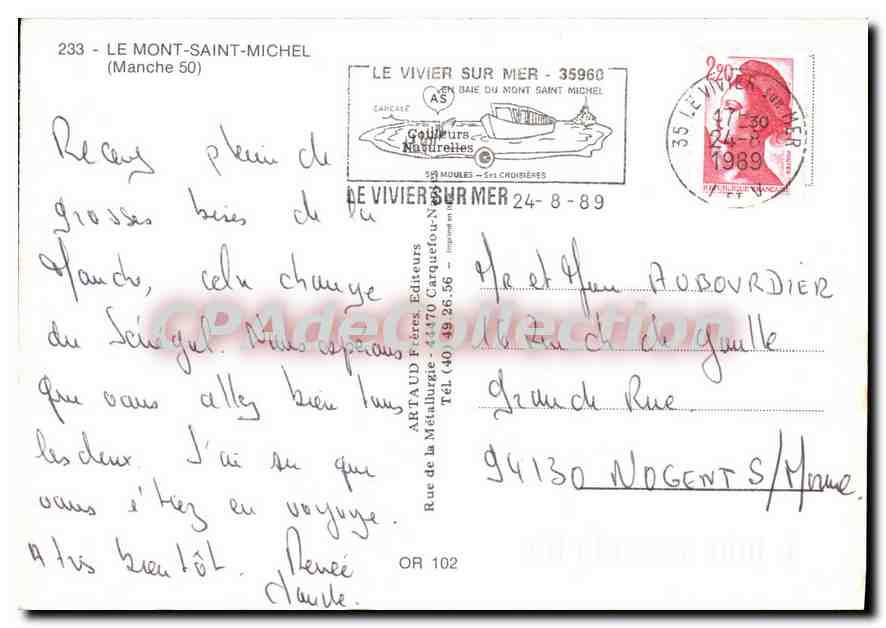 233 - LE MONT-SAINT-MICHEL
(Manche 50)
LE VIVIER SUR MER - 35960
EN BAIE DU MONT SAINT MICHEL
AS
CANCALE
Couleurs
Naturelles
SES MOULES - SES CROISIÈRES
LE VIVIER SUR MER 24-8-89
2,20
35 LE VIVIER SUR MER
17-30
24-8
1989
I. ET V.
REPUBLIQUE FRANÇAISE
Recevez plein de
grosses bises de la
Manche, cela change
du Sénégal. Nous espérons
que vous allez bien tous
les deux. J'ai su que
vous étiez en voyage.
A très bientôt. Renée
Claude.
ARTAUD Frères, Editeurs
Rue de la Métallurgie - 44470 Carquefou-Nantes
Tél. (40) 49.26.56 - Imprimé en
OR 102
Mr et Mme AUBOURDIER
Ch de Gaulle
Grande Rue.
94130 NOGENT S/Marne.
CPAdeCollection